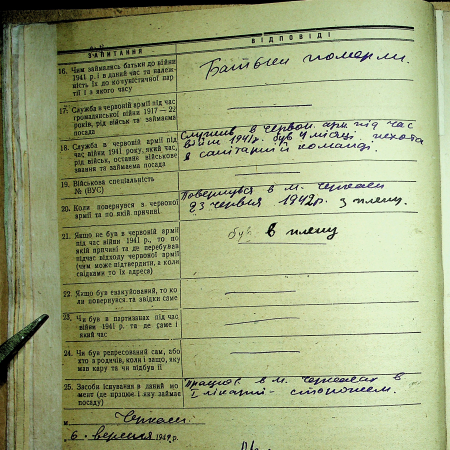 ЗАПИТАННЯ
ВІДПОВІДІ
16. Чим займались батьки до війни
1941 р. і в даний час та належ-
ність їх до комуністичної пар-
тії і з якого часу
Батьки померли.
17. Служба в червоній армії під час
громадянської війни 1917 — 22
років, рід військ та займаєма
посада
18. Служба в червоній армії під
час війни 1941 року, який час,
рід військ, остання військове
звання та займаєма посада
Служив в червон. арм. під час
війни 1941р. був 4 місяці. пехота
в санітарній команді.
19. Військова спеціяльність
№ (ВУС)
20. Коли повернувся з червоної
армії та по якій причині
Повернувся в м. Черкаси
23 червня 1942р. з плену.
21. Якщо не був в червоній армії
під час війни 1941 р., то по
якій причині та де перебував
підчас відходу червоної армії
(чим може підтвердити, а коли
свідками то їх адреса)
був в плену
22. Якщо був евакуйований, то ко-
ли повернувся та звідки саме
23. Чи був в партизанах під час
війни 1941 р. та де саме і
який час
24. Чи був репресований сам, або
хто з родичів, коли і защо, яку
мав кару та чи відбув її
25. Засоби існування в даний мо-
мент (де працює і яку займає
посаду)
Працює в м. Черкасах в
I лікарні - сторожем.
м. Черкаси.
"6" вересня 1942 р.